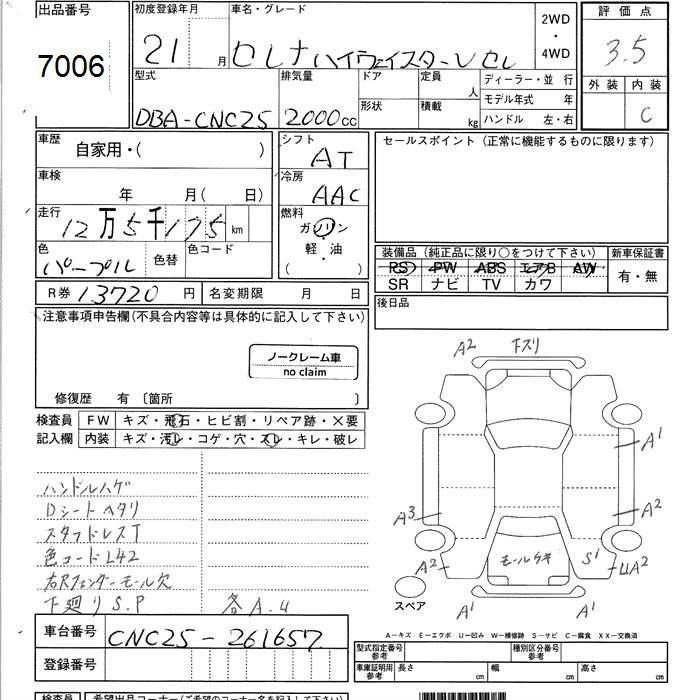 出品番号
7006
初度登録年月
21 月
車名・グレード
セレナ ハイウェイスターV セレ
2WD
・
4WD
評価点
3.5
外装 内装
C
型式
DBA-CNC25
排気量
2000cc
ドア
形状
定員 人
積載 kg
ディーラー・並 行
モデル年式 年
ハンドル 左・右
車歴
自家用・( )
車検
年 月( 日)
走行
12万5千175 km
色
パープル
色替
色コード
シフト
AT
冷房
AAC
燃料
ガソリン
軽・油
( )
セールスポイント (正常に機能するものに限ります)
装備品 (純正品に限り○をつけて下さい)
PS PW ABS エアB AW
SR ナビ TV カワ
新車保証書
有・無
後日品
R券 13720 円
名変期限 月 日
注意事項申告欄(不具合内容等は具体的に記入して下さい)
ノークレーム車
no claim
修復歴 有 〔箇所 〕
検査員 FW キズ・飛石・ヒビ割・リペア跡・×要
記入欄 内装 キズ・汚レ・コゲ・穴・スレ・キレ・破レ
ハンドルハゲ
Dシートヘタリ
スタッドレスT
色コードL42
右Rフェンダーモール欠
下廻りS.P 各A.U
A2 下スリ
A1
A3
A2
A2
モールキキ
S1
UA2
スペア
A1
A1
A-キズ E-エクボ U-凹み W-補修跡 S-サビ C-腐食 XX-交換済
車台番号
CNC25-261657
登録番号
型式指定番号
参考
種別区分番号
参考
車庫証明用
参考
長さ cm
幅 cm
高さ cm
検査員
希望出品コーナー(ご希望のコーナー名を記入して下さい)